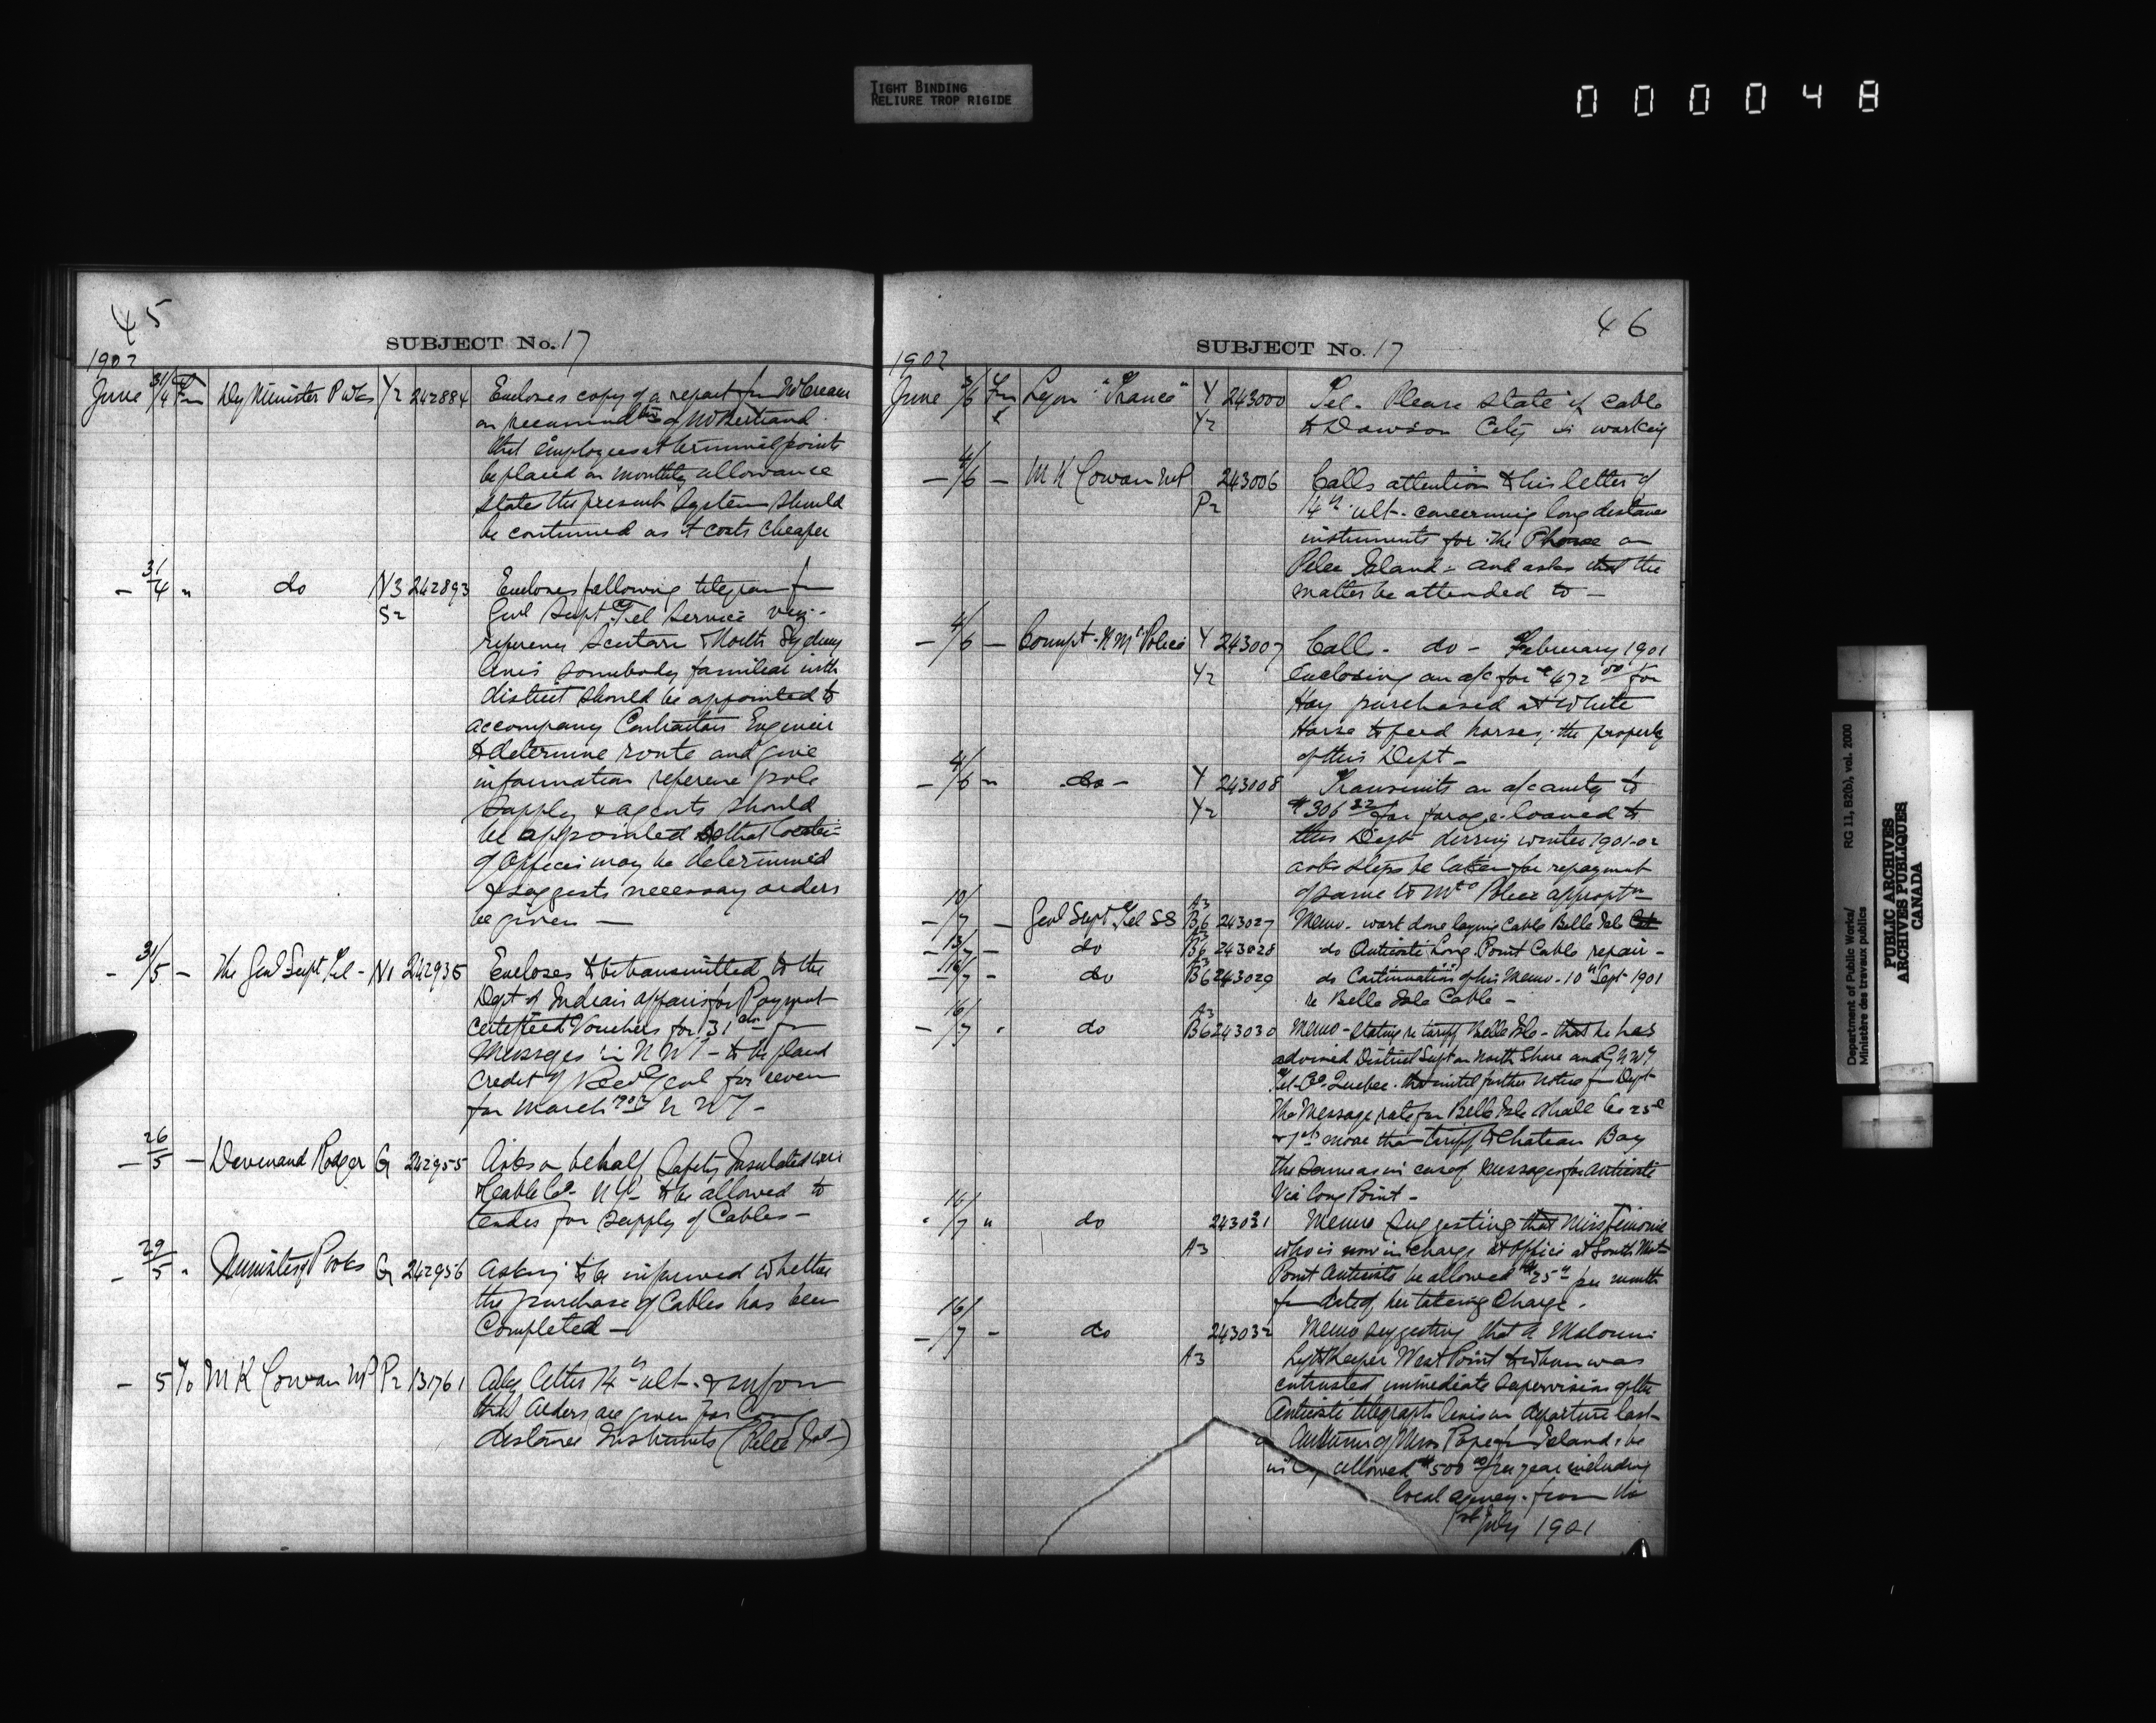 TIGHT BINDING
RELIURE TROP RIGIDE
000048
45
SUBJECT No. 17
1902
June 31/4 Fm Dy Minister P Wks Y2 242884 Encloses copy of a report fm
on of Mr Bertrand
that employees at terminal points
be placed on monthly allowance
states the present system should
be continued as it costs cheaper
- 31/4 " do N3 242893 Encloses following telegram fm
S2 Genl Supt Tel Service
reference Scatarie & North Sydney
lines somebody familiar with
district should be appointed to
accompany Contractors Engineer
to determine route and give
information reference pole
supply & agents should
be appointed so that location
of offices may be determined
& suggests necessary orders
be given —
- 31/5 - The Genl Supt Tel - N1 242935 Encloses to be transmitted to the
Dept of Indian affairs for Payment
certified Vouchers for 131 fm
Messages in N W T - to be placed
credit of Rec Genl for
for March 1902 N W T -
- 26/5 - Rodger G 242955 Asks on behalf Safety Insulated wire
& cable Co - N Y - to be allowed to
tender for supply of Cables -
- 29/5 " Minister P Wks G 242956 Asking to be informed whether
the purchase of Cables has been
Completed —
- 5/6 M K Cowan MP P2 131761 Akg letter 14th ult - & inform
that orders are given for long
distance Instruments (Pelee Isl-)
46
SUBJECT No. 17
1902
June 3/6 Fm Lyon "France" Y 243000 Tel - Please state if cable
Y2 to Dawson City is working
- 4/6 - M K Cowan MP 243006 Calls attention to his letter of
P2 14th ult - concerning long distance
instruments for the Phone on
Pelee Island - and asks that the
matter be attended to —
- 4/6 - Compt - N W M Police Y 243007 Call - do - February 1901
Y2 enclosing an a/c for $472 00 for
Hay purchased at White
Horse to feed horses, the property
of this Dept -
- 4/6 " do - Y 243008 Transmits an a/c amtg to
Y2 $306 22 for forage loaned to
this Dept during winter 1901-02
asks steps be taken for repayment
of same to Mtd Police appropn
- 10/7 - Genl Supt Tel SS A3 B6 243027 Memo - work done laying Cable Belle Isle
- 13/7 - do A3 B6 243028 do Anticosti Long Point Cable repair -
- 16/7 - do A3 B6 243029 do Continuation of his Memo - 10th Sept 1901
re Belle Isle Cable -
- 16/7 " do A3 B6 243030 Memo - stating re tariff Belle Isle - that he has
advised District Supt on North Shore and G N W
Tel - Co - Quebec - that until further notice fm Dept
the Message rate for Belle Isle shall be 25c
& 1ct more than tariff to Chateau Bay
the same as in case of messages for Anticosti
via Long Point -
" 16/7 " do 243031 Memo suggesting that Miss
A3 who is now in charge at office at South West
Point Anticosti be allowed $25 per month
fm date of her taking charge -
- 16/7 - do 243032 Memo suggesting that A Malouin
A3 Light Keeper West Point to whom was
entrusted immediate supervision of the
Anticosti telegraph lines on departure last
autumn of Miss Pope fm Island, be
allowed $500 00 per year including
local agency - from the
1st July 1901
Department of Public Works/
Ministère des travaux publics
RG 11, B2(b), vol. 2000
PUBLIC ARCHIVES
ARCHIVES PUBLIQUES
CANADA